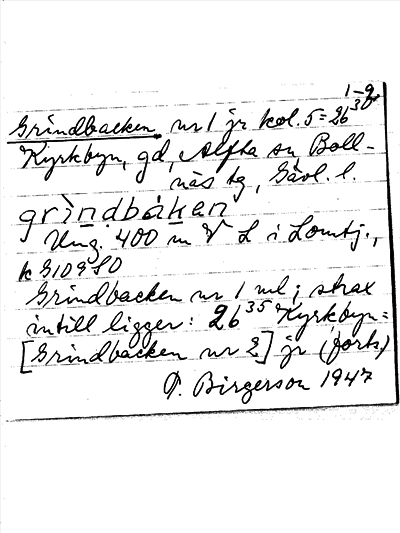 1-9
Grindbacken nr 1 jr kol. 5 = 26³⁰
Kyrkbyn, gd, Alfta sn Boll-
näs tg, Gävl. l.
grìndbákan
Ung. 400 m V L i Lomtj.,
k G109SO
Grindbacken nr 1 ml; strax
intill ligger: 26³⁵ Kyrkbyn =
[Grindbacken nr 2] jr (forts)
P. Birgerson 1947